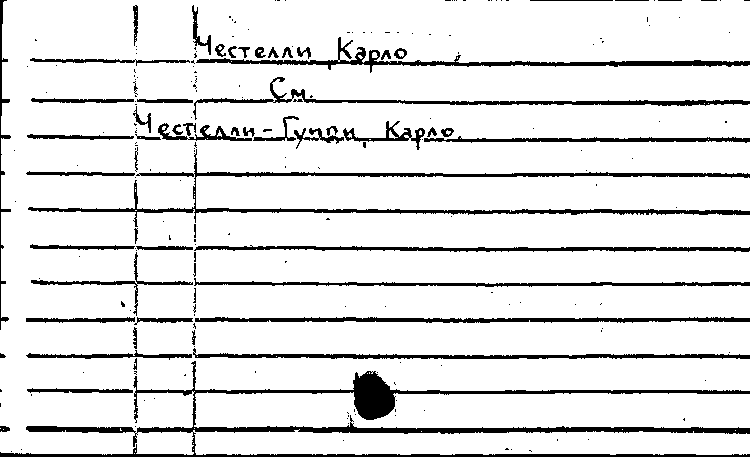 Честелли, Карло
См.
Честелли-Гуиди, Карло.